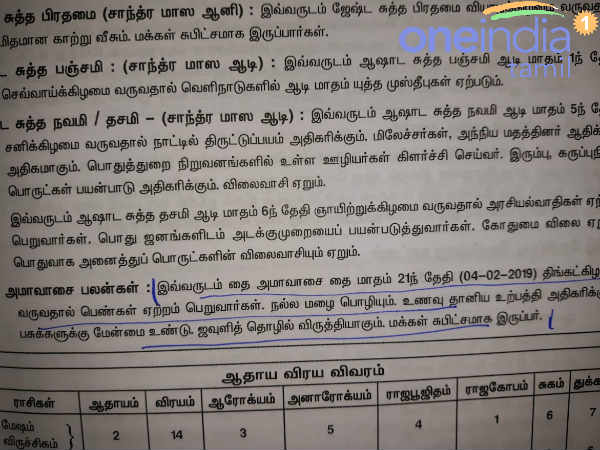 சுத்த பிரதமை (சாந்த்ர மாஸ ஆனி) : இவ்வருடம் ஜேஷ்ட சுத்த பிரதமை
மிதமான காற்று வீசும். மக்கள் சுபிட்சமாக இருப்பார்கள்.
oneindia
tamil
1
ட சுத்த பஞ்சமி : (சாந்த்ர மாஸ ஆடி) : இவ்வருடம் ஆஷாட சுத்த பஞ்சமி ஆடி மாதம் 1ந்
செவ்வாய்க்கிழமை வருவதால் வெளிநாடுகளில் ஆடி மாதம் யுத்த முஸ்தீபுகள் ஏற்படும்.
ட சுத்த நவமி / தசமி – (சாந்த்ர மாஸ ஆடி) : இவ்வருடம் ஆஷாட சுத்த நவமி ஆடி மாதம் 5ந்
சனிக்கிழமை வருவதால் நாட்டில் திருட்டுப்பயம் அதிகரிக்கும். மிலேச்சர்கள், அந்நிய மதத்தினர்
அதிகமாகும். பொதுத்துறை நிறுவனங்களில் உள்ள ஊழியர்கள் கிளர்ச்சி செய்வர். இரும்பு,
பொருட்கள் பயன்பாடு அதிகரிக்கும். விலைவாசி ஏறும்.
இவ்வருடம் ஆஷாட சுத்த தசமி ஆடி மாதம் 6ந் தேதி ஞாயிற்றுக்கிழமை வருவதால் அரசியல்வாதிகள்
பெறுவார்கள். பொது ஜனங்களிடம் அடக்குமுறையைப் பயன்படுத்துவார்கள். கோதுமை விலை
பொதுவாக அனைத்துப் பொருட்களின் விலைவாசியும் ஏறும்.
அமாவாசை பலன்கள் : இவ்வருடம் தை அமாவாசை தை மாதம் 21ந் தேதி (04-02-2019)
வருவதால் பெண்கள் ஏற்றம் பெறுவார்கள். நல்ல மழை பொழியும். உணவு தானிய உற்பத்தி
பசுக்களுக்கு மேன்மை உண்டு. ஜவுளித் தொழில் விருத்தியாகும். மக்கள் சுபிட்சமாக இருப்பர்.
ஆதாய விரய விவரம்
ராசிகள் ஆதாயம் விரயம் ஆரோக்யம் அனாரோக்யம் ராஜபூஜிதம் ராஜகோபம் சுகம்
மேஷம்
விருச்சிகம் 2 14 3 5 4 1 6 7